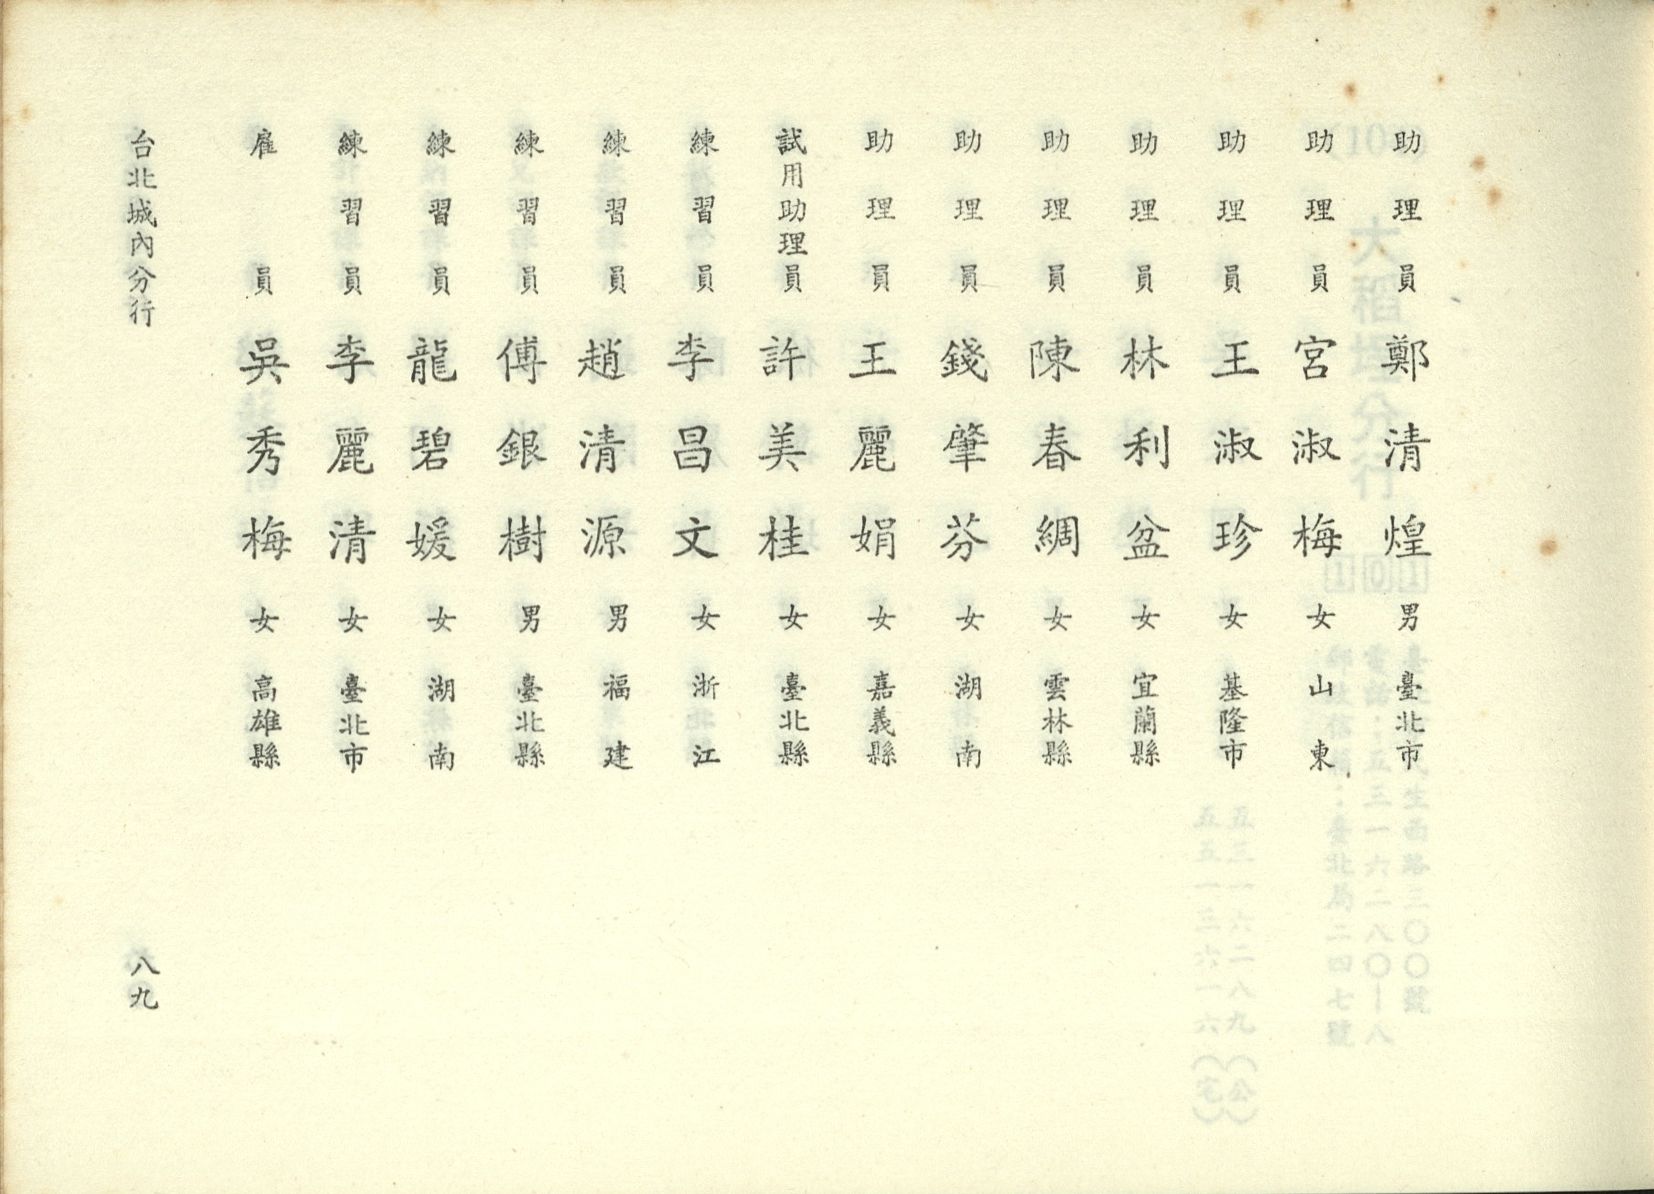 助理員 鄭清煌 男 臺北市
助理員 宮淑梅 女 山東
助理員 王淑珍 女 基隆市
助理員 林利盆 女 宜蘭縣
助理員 陳春綢 女 雲林縣
助理員 錢肇芬 女 湖南
助理員 王麗娟 女 嘉義縣
試用助理員 許美桂 女 臺北縣
練習員 李昌文 女 浙江
練習員 趙清源 男 福建
練習員 傅銀樹 男 臺北縣
練習員 龍碧媛 女 湖南
練習員 李麗清 女 臺北市
雇員 吳秀梅 女 高雄縣
台北城內分行 八九